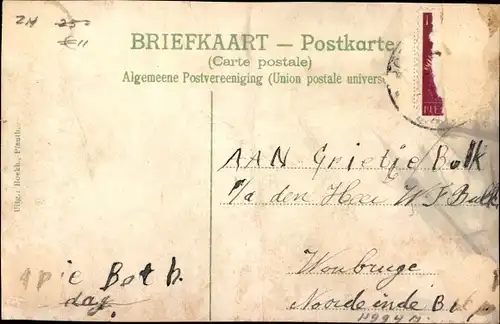 ZH 250
€11
BRIEFKAART — Postkarte
(Carte postale)
Algemeene Postvereeniging (Union postale univers
Uitg.: Boekh.
AAN Grietje Bulk
P/a den Heer W F Bulk
Woubruge
Noordeinde B
H994M
Both
dag